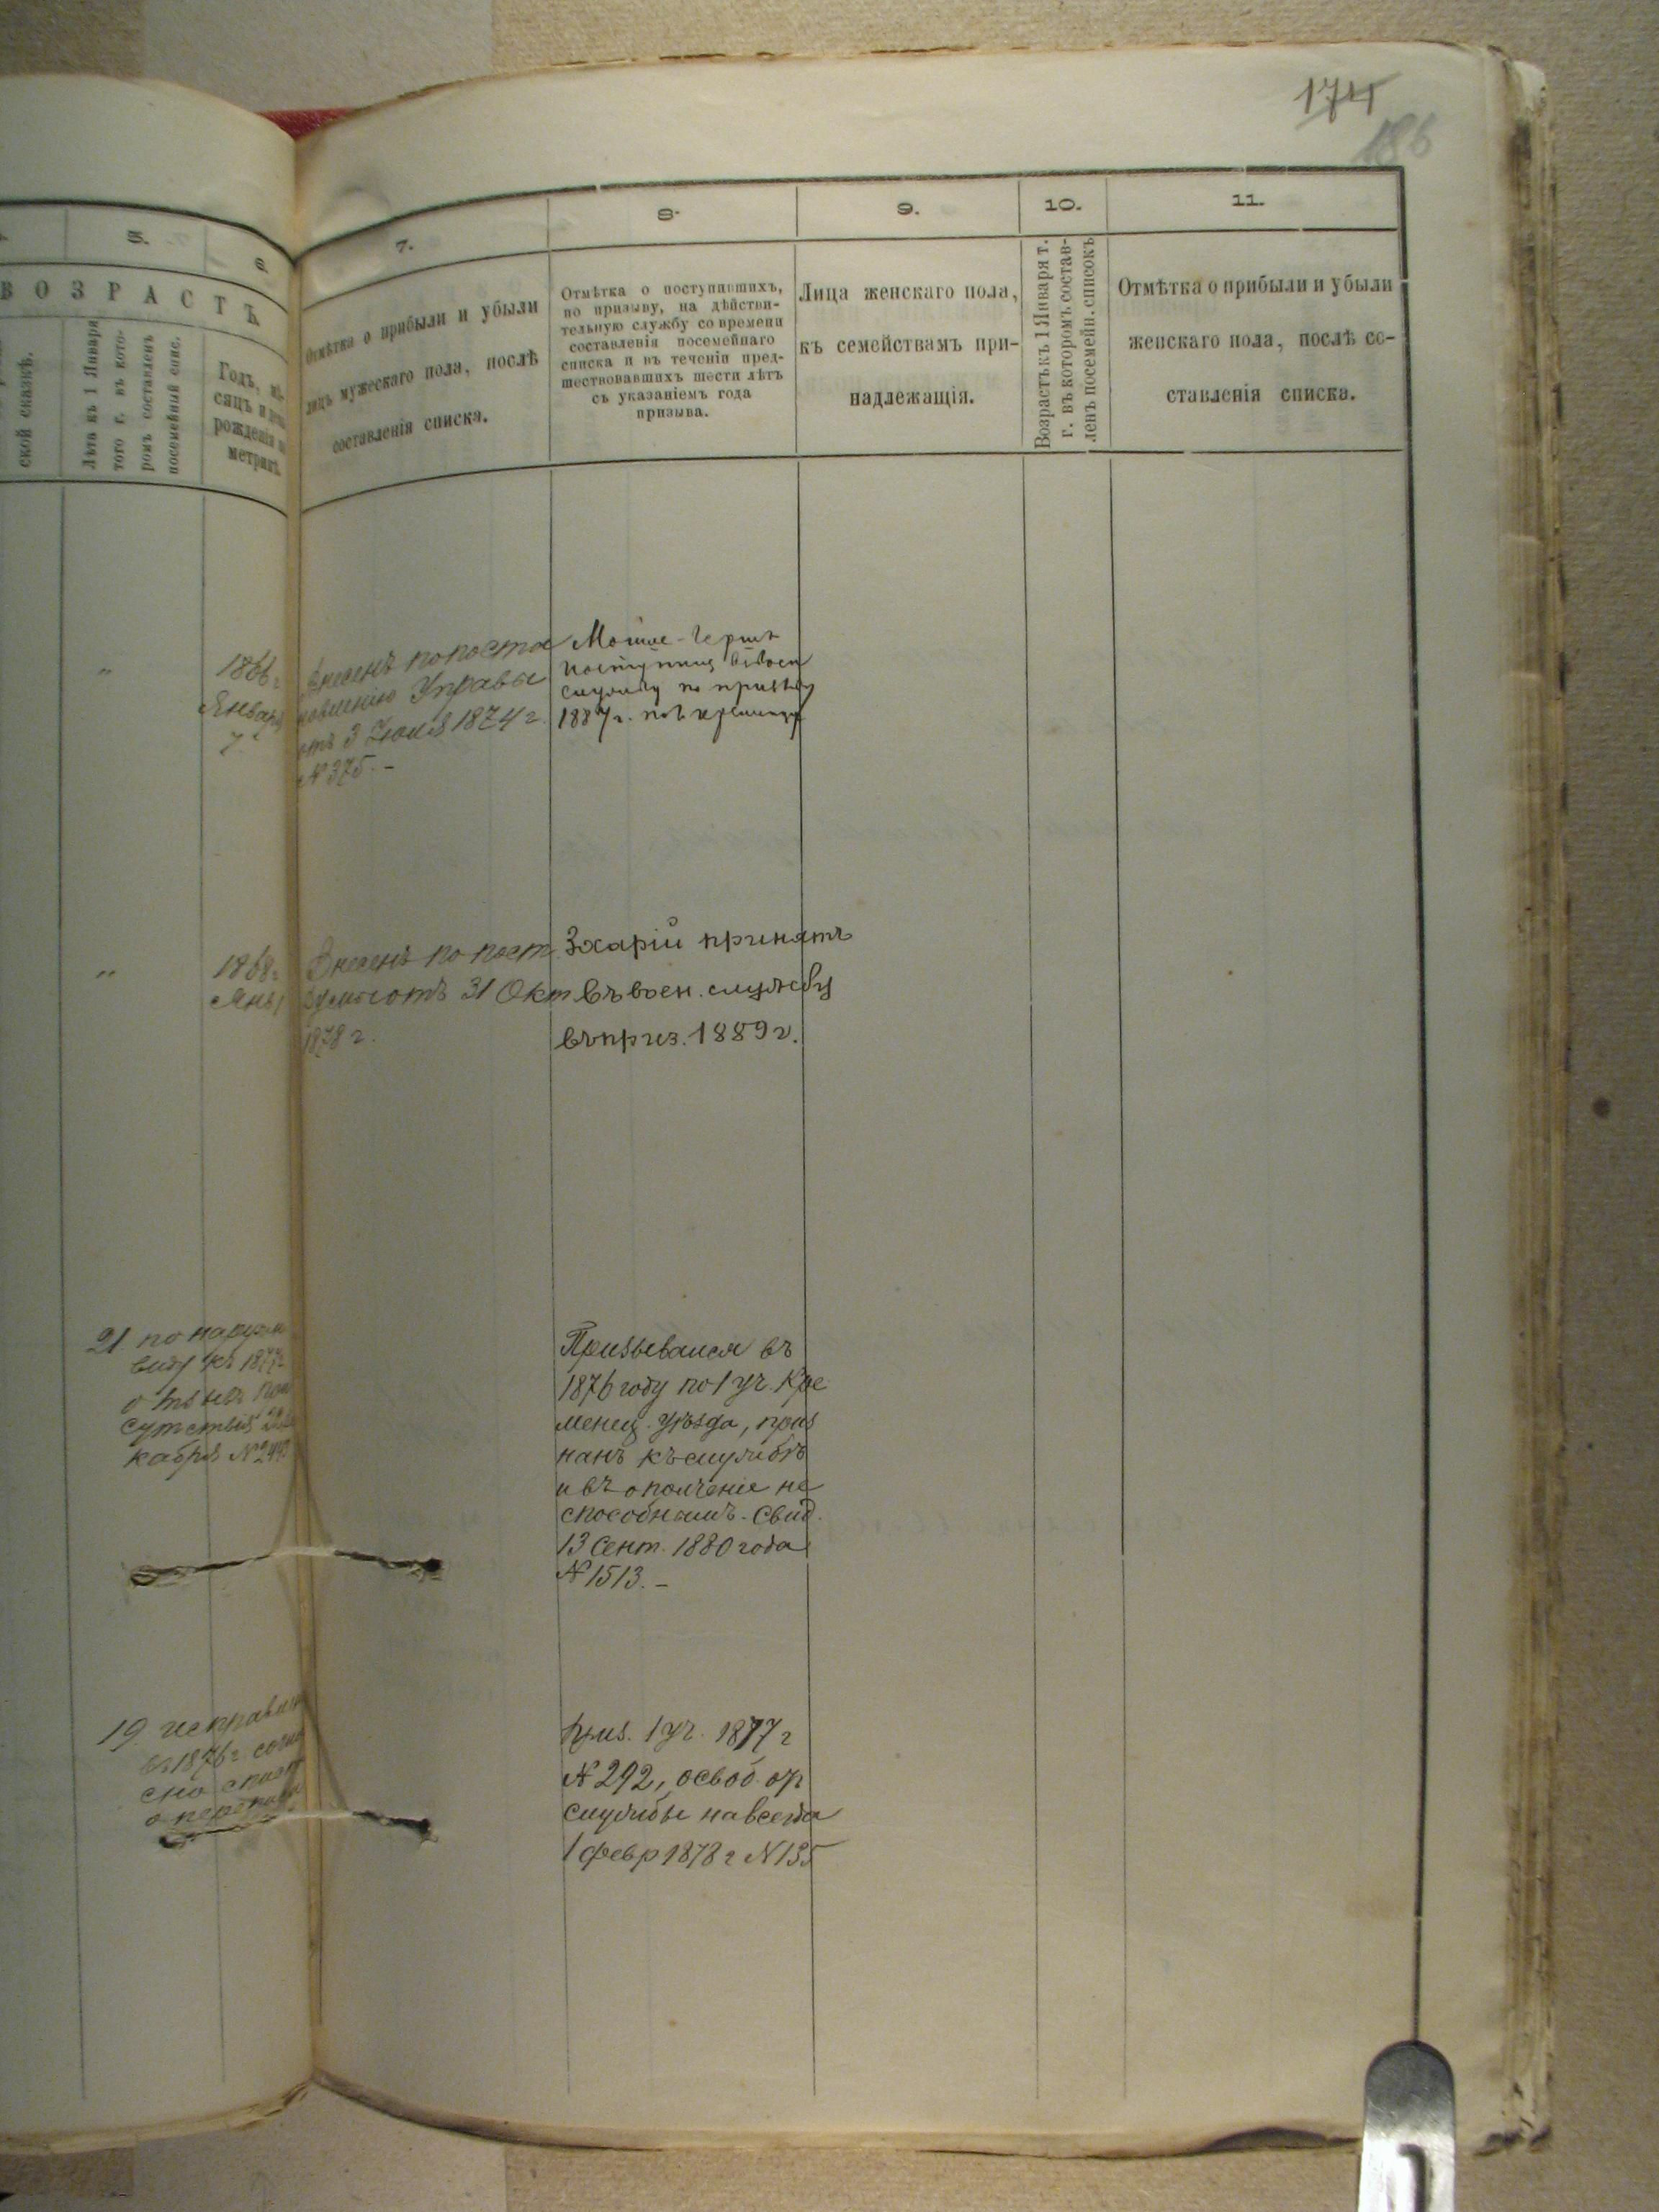 174
186
5.
6.
ВОЗРАСТЪ.
ской сказкѣ.
Лѣта къ 1 Января
того г. въ кото-
ромъ составленъ
посемейный спис.
Годъ, мѣ-
сяцъ и день
рожденія по
метрикѣ.
7.
Отмѣтка о прибыли и убыли
лицъ мужескаго пола, послѣ
составленія списка.
8.
Отмѣтка о поступившихъ,
по призыву, на дѣйстви-
тельную службу со времени
составленія посемейнаго
списка и въ теченіи пред-
шествовавшихъ шести лѣтъ
съ указаніемъ года
призыва.
9.
Лица женскаго пола,
къ семействамъ при-
надлежащія.
10.
Возрастъ къ 1 Января т.
г. въ которомъ состав-
ленъ посемейн. списокъ
11.
Отмѣтка о прибыли и убыли
женскаго пола, послѣ со-
ставленія списка.
"
1866 г.
Января
7
Внесенъ по поста
новленію Управы
отъ 3 Іюля 1874 г.
№ 375. –
Мошие-Гершъ
службу по призыву
1887 г.
"
1868 г.
Янв 1
Внесенъ по пост
отъ 31 Окт
1878 г.
Зхарій принятъ
въ воен. службу
въ приз. 1889 г.
21 по наружн
виду къ 187
сутствія
кабря №
Призывался въ
1876 году по 1 уч. Кре
менец. уѣзда, приз
нанъ къ службѣ
и въ ополченіе не
способнымъ. Свид.
13 Сент. 1880 года
№ 1513. –
19 исправлен
въ 1876 г. согла
сно
о
Приз. 1 уч. 1877 г
№ 292, освоб. от
службы навсегда
1 февр 1878 г № 135